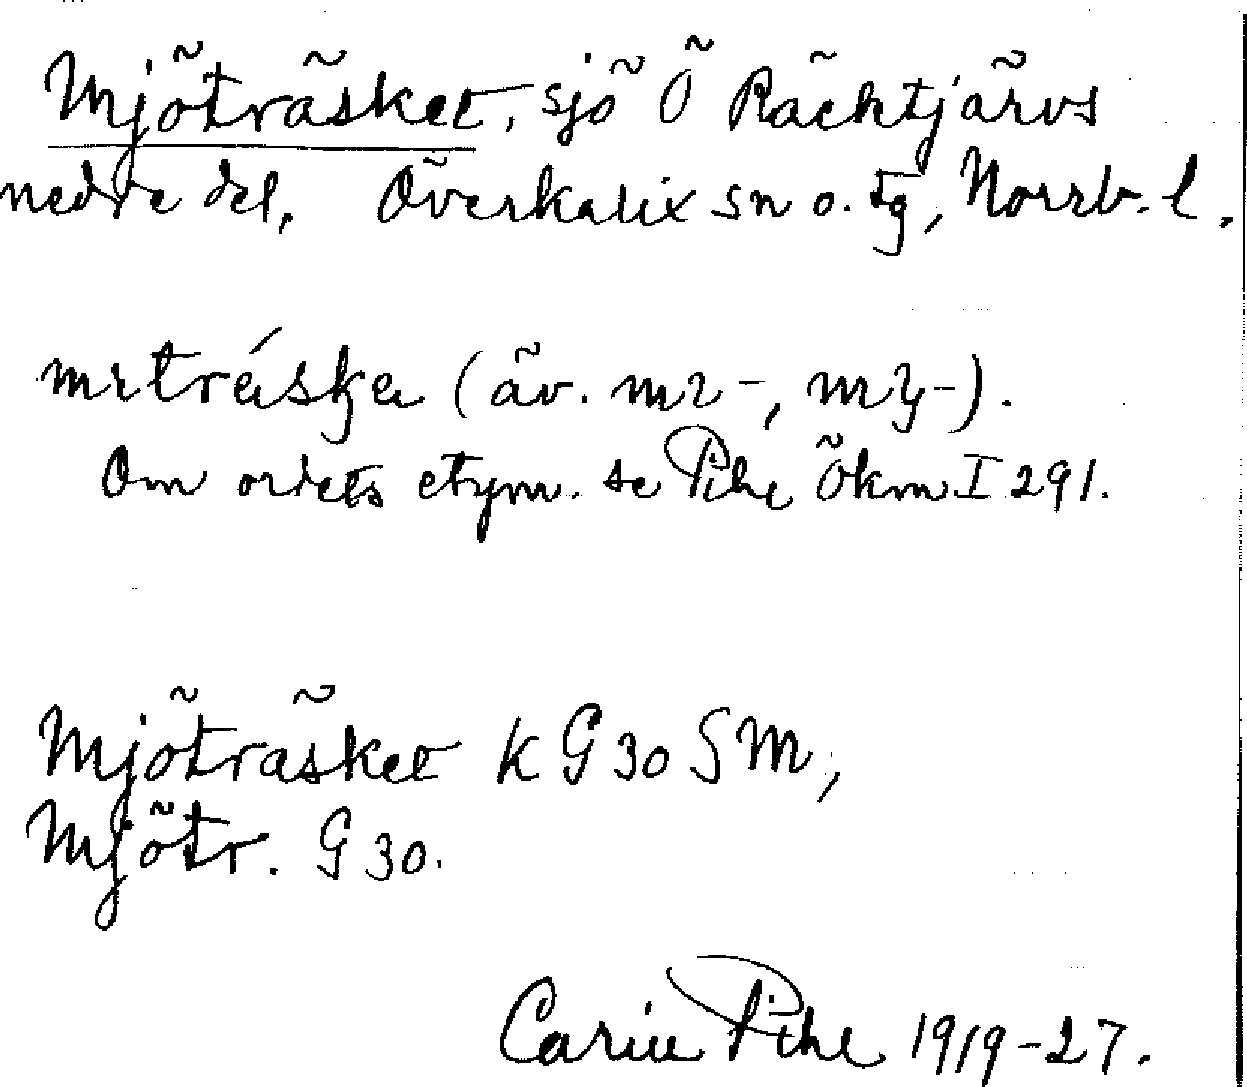 Mjöträsket, sjö Ö Räcktjärvs
nedre del, Överkalix sn o. tg, Norrb. l.
(äv. 
Om ordets etym. se Pihl Ökm I 291.
Mjöträsket K G 30 SM,
Mjötr. G 30.
Carin Pihl 1919-27.